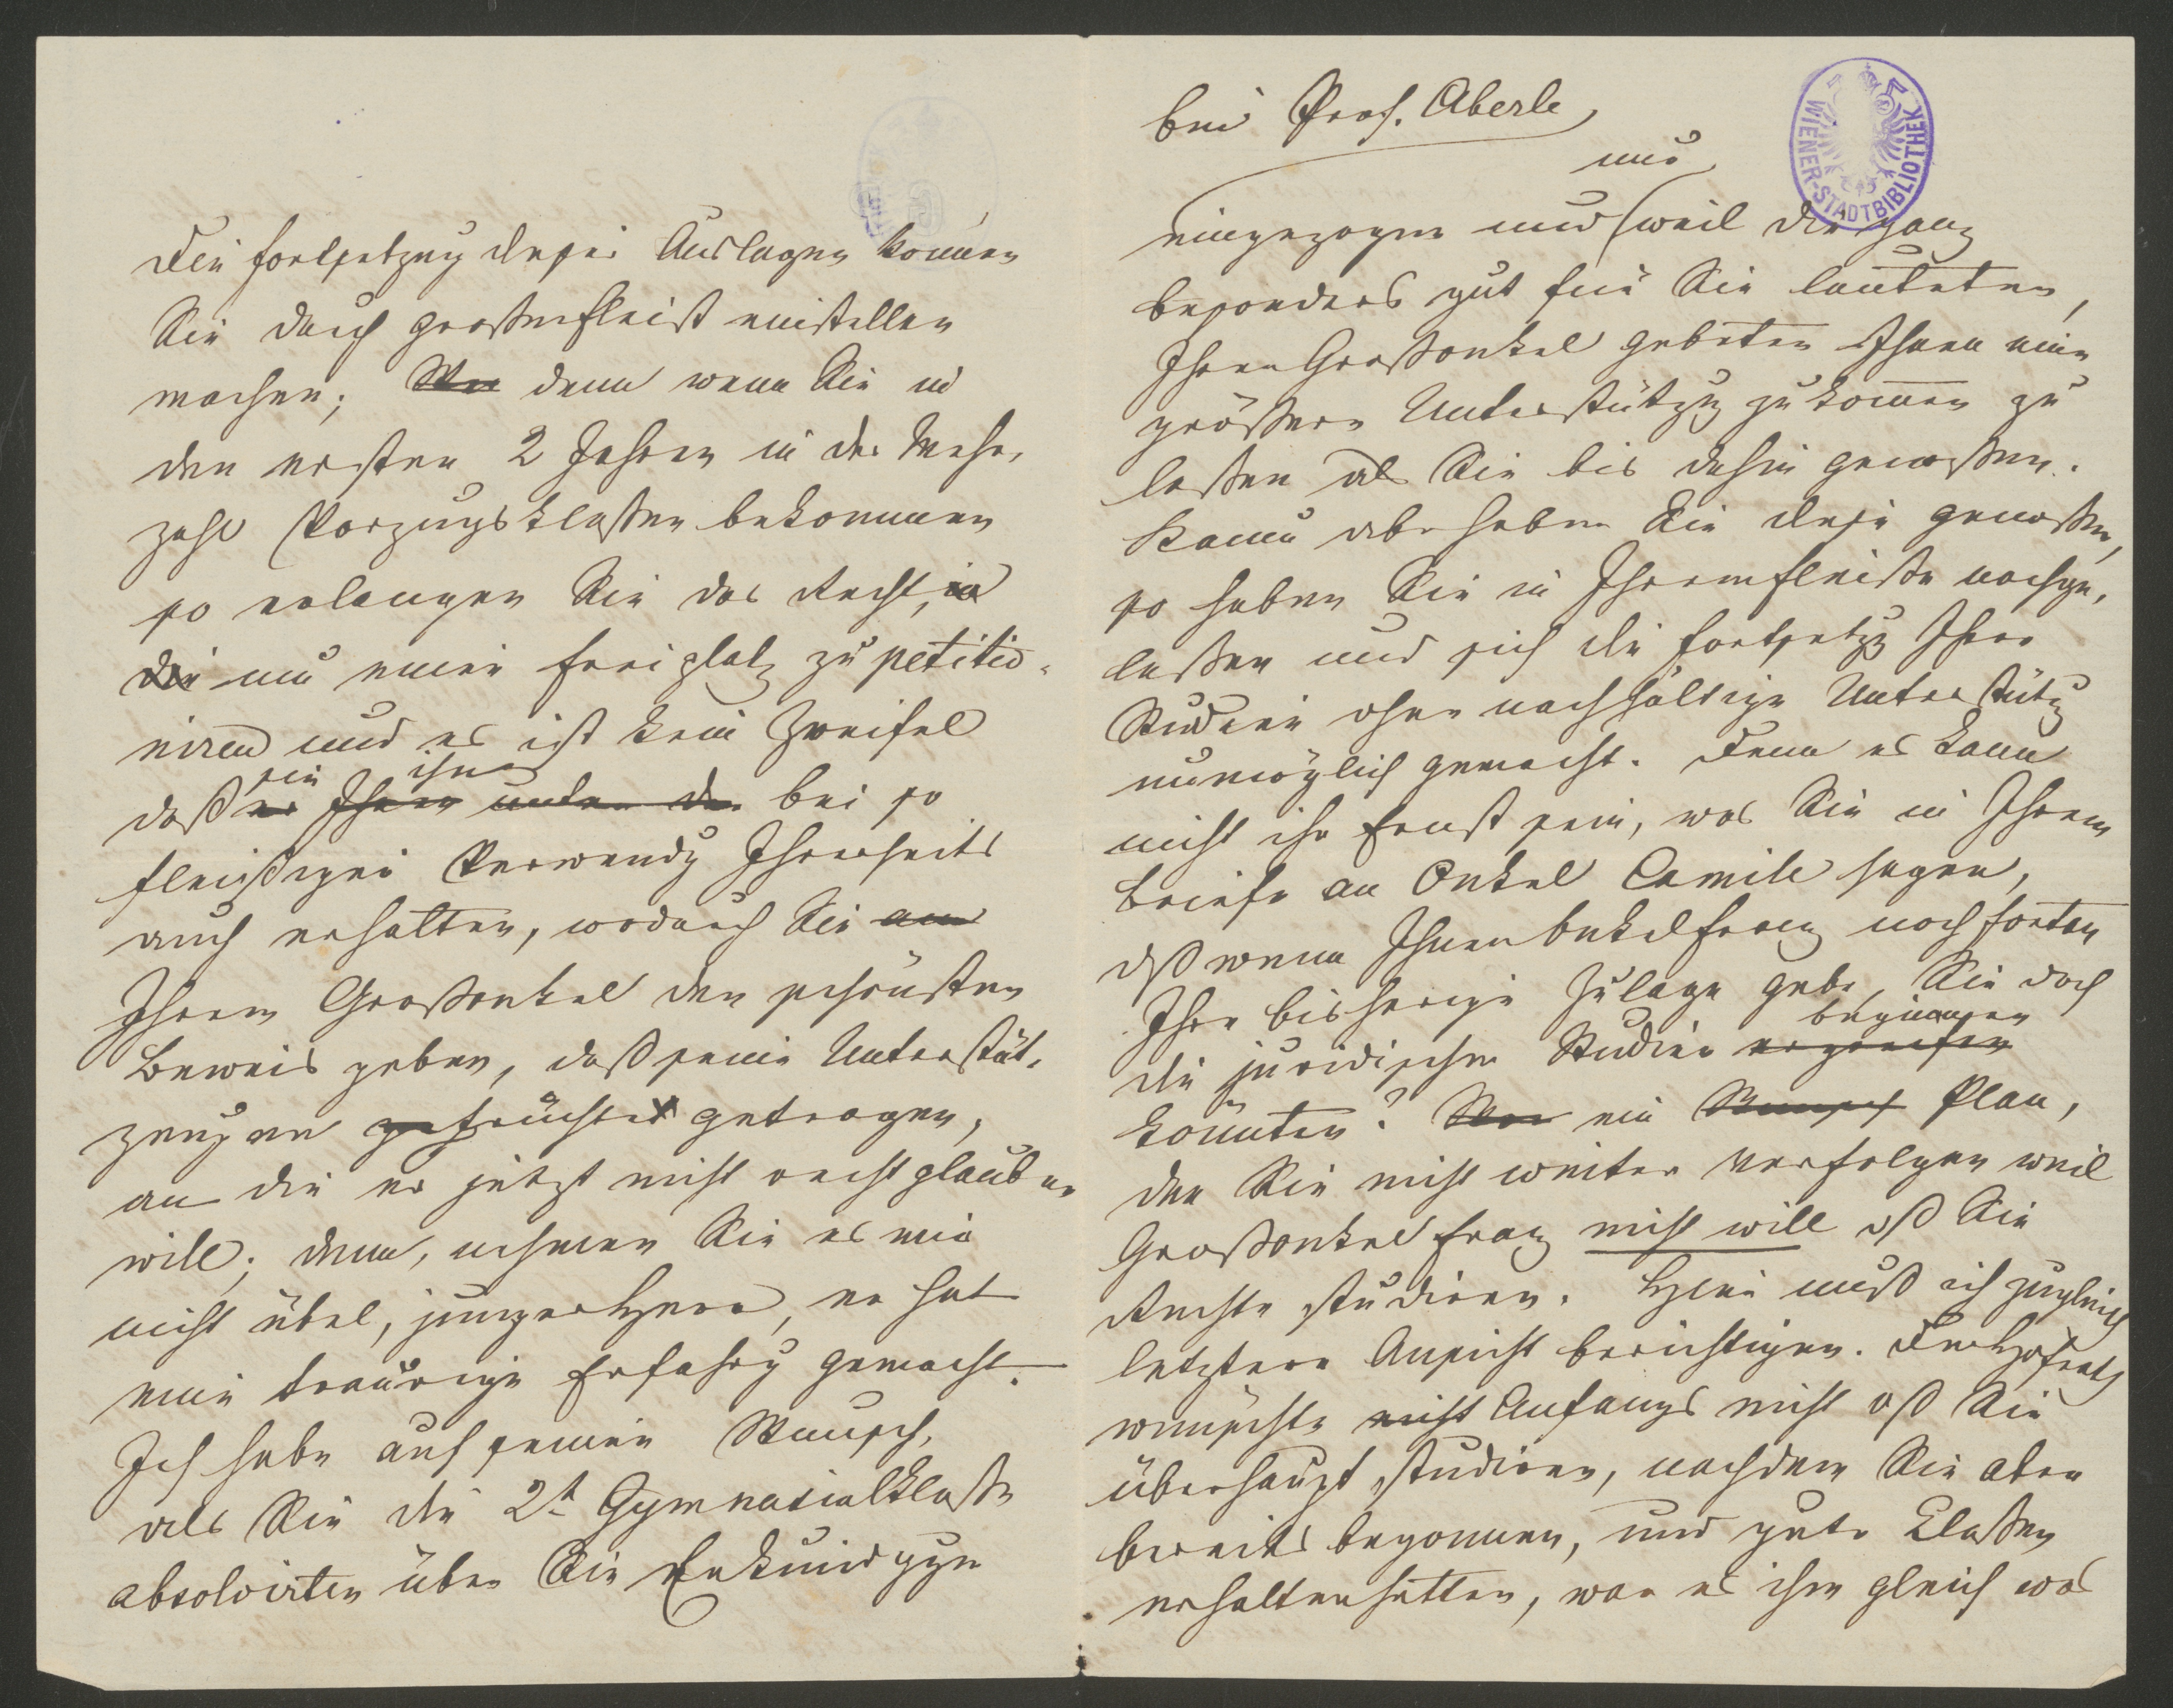 Die Fortsetzung dieser Auslagen können
Sie durch großen Fleiß einstellen
machen; denn wenn Sie in
den ersten 2 Jahren in der Mehr-
zahl Vorzugsklaßen bekommen
so erlangen Sie das Recht,
um einen Freiplatz zu petitio-
niren und es ist kein Zweifel
sie ihn
daß er Ihnen bei so
fleißiger Verwendg Ihrerseits
auch erhalten, wodurch Sie
Ihrem Großonkel den schönsten
Beweis geben, daß seine Unterstüt-
zungen Früchte getragen,
an die er jetzt nicht recht glauben
will; denn, nehmen Sie es mir
nicht übel, junger Herr, er hat
eine traurige Erfahrg gemacht.
Ich habe auf seinen Wunsch,
als Sie die 2t Gymnasialklaße
absolvirten über Sie Erkundiggen
bei Prof. Aberle
nur
eingezogen und weil die ganz
besonders gut für Sie lauteten,
Ihren Großonkel gebeten Ihnen eine
größere Unterstützg zukommen zu
laßen als Sie bis dahin genoßen.
Kaum aber haben Sie diese genoßen,
so haben Sie in Ihrem Fleiße nachge-
laßen und sich die Fortsetzg Ihrer
Studien ohne nachhaltige Unterstützg
unmöglich gemacht. Denn es kann
nicht ihr Ernst sein, was Sie in Ihrem
Briefe an Onkel Camill sagen,
dß wenn Ihnen Onkel Franz noch fortan
Ihre bisherige Zulage gebe, Sie doch
beginnen
die juridischen Studien ergreifen
könnten? ein Wunsch Plan,
den Sie nicht weiter verfolgen weil
Großonkel Franz nicht will dß Sie
Rechte studiren. Hier muß ich zugleich
letztere Ansicht berichtigen. Der Hofrath
wünschte nicht Anfangs nicht dß Sie
überhaupt studiren, nachdem Sie aber
bereits begonnen, und gute Claßen
erhalten hatten, war es ihm gleich was
WIENER-STADTBIBLIOTHEK